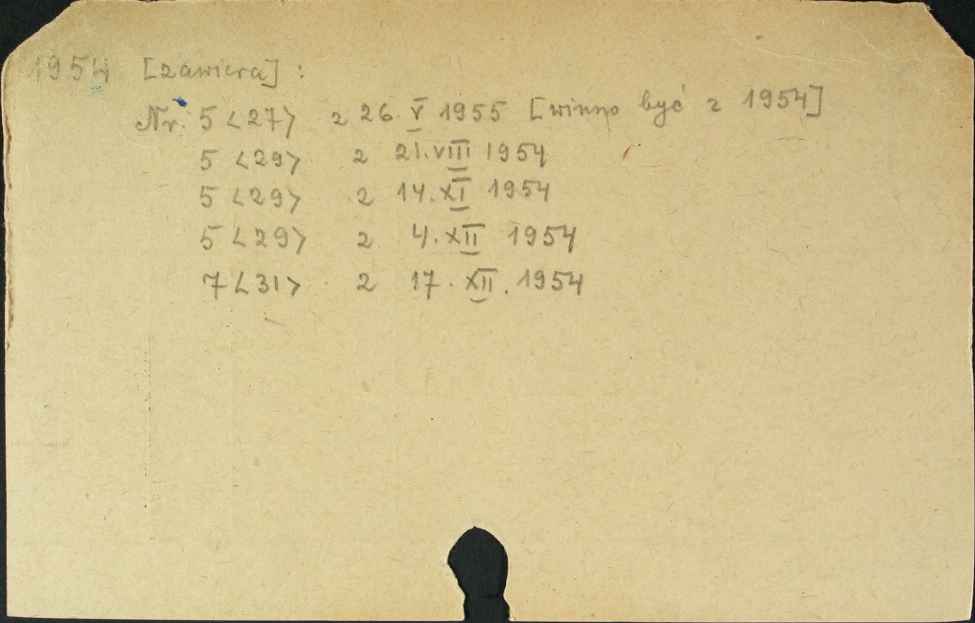 1954 [zawiera]:
Nr. 5 <27> z 26. V 1955 [winno być z 1954]
5 <29> z 21. VIII 1954
5 <29> z 14. XI 1954
5 <29> z 4. XII 1954
7 <31> z 17. XII. 1954